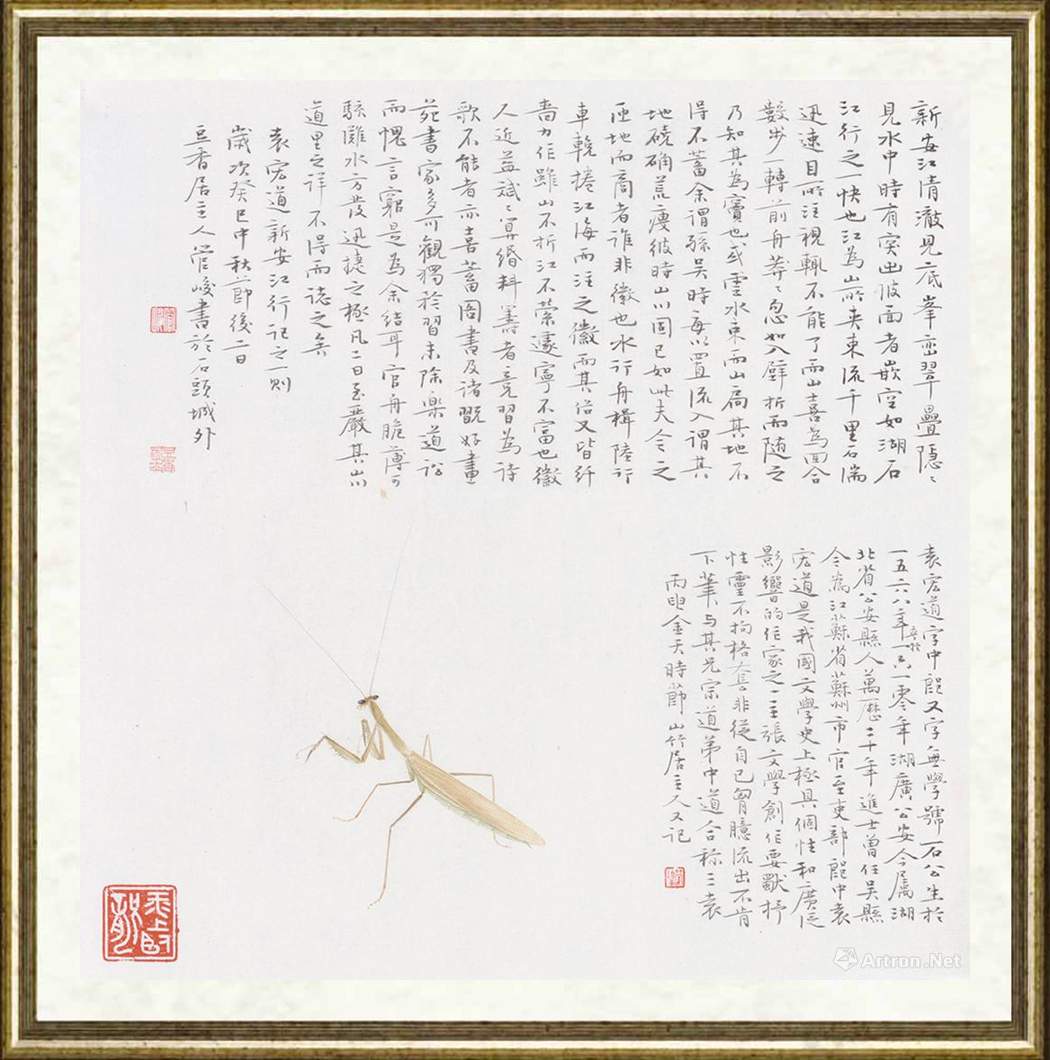 新安江清澈见底峯峦翠疊隐〻
見水中時有突出波面者嵌空如湖石
江行之一快也江為山所夹東流千里石湍
迅速目所注視輒不能了而山喜為回合
數步一轉前舟莽〻忽如入壁折而隨之
乃知其為竇也或雲水東而山扃其地不
得不蓄余謂孫吳時每以置流入謂其
地磽确荒瘦彼時山川固已如此夫今之
匝地而商者誰非徽也水行舟楫陸行
車輓捲江海而注之徽而其俗又皆纤
嗇力作雖山不折江不萦遽寧不富也徽
人近益斌〻算缗料籌者竞習為诗
歌不能者亦喜蓄圖書及诸翫好畫
苑書家多可觀獨於習未除樂道訟
而愧言窮是為余结耳官舟脆薄可
駭雖水方发迅捷之極凡二日至嚴其山川
道里之详不得而誌之矣
袁宏道新安江行记之一則
歲次癸巳中秋節後二日
豆香居主人管峻書於石頭城外
袁宏道字中郎又字無學號石公生於
一五六八年卒於一六一零年湖廣公安今屬湖
北省公安縣人萬歷二十年進士曾任吴縣
令為江蘇省蘇州市官至吏部郎中袁
宏道是我國文學史上極具個性和廣泛
影響的作家之一主張文學創作要獻抒
性靈不拘格套非從自己胸臆流出不肯
下筆与其兄宗道弟中道合称三袁
丙申金天時節山竹居主人又记
Artron.Net